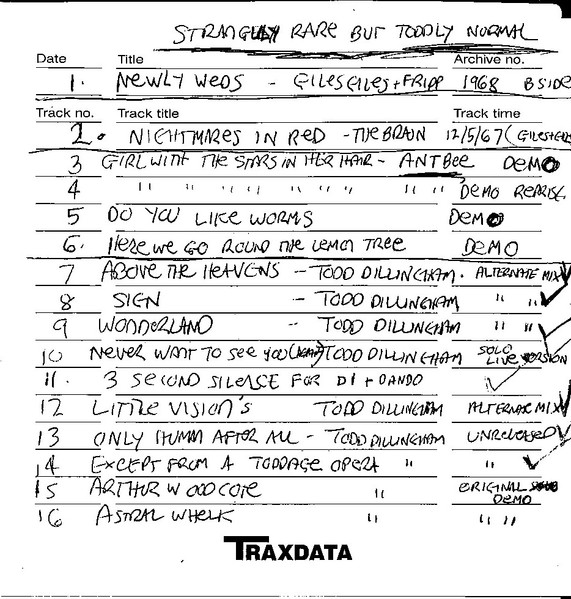 STRANGLY RARE BUT TODDLY NORMAL
Date Title Archive no.
1. NEWLY WEDS - GILES GILES + FRIPP 1968 B SIDE
Track no. Track title Track time
2. NIGHTMARES IN RED - THE BRAIN 12/5/67 (GILES+GILES
3 GIRL WITH THE STARS IN HER HAIR - ANT BEE DEMO
4 " " " " " " " " " DEMO REPRISE
5 DO YOU LIKE WORMS DEMO
6. HERE WE GO ROUND THE LEMON TREE DEMO
7 ABOVE THE HEAVENS - TODD DILLINGHAM. ALTERNATE MIX
8 SIGN - TODD DILLINGHAM " "
9 WONDERLAND - TODD DILLINGHAM " "
10 NEVER WANT TO SEE YOU TODD DILLINGHAM SOLO LIVE VERSION
11. 3 SECOND SILENSE FOR DI + DANDO
12 LITTLE VISION'S TODD DILLINGHAM ALTERNATE MIX
13 ONLY HUMM AFTER ALL - TODD DILLINGHAM UNRELEASED
14 EXCEPT FROM A TODDAGE OPERA " "
15 ARTHUR WOODCOTE " ORIGINAL DEMO
16 ASTRAL WHELK " " "
TRAXDATA